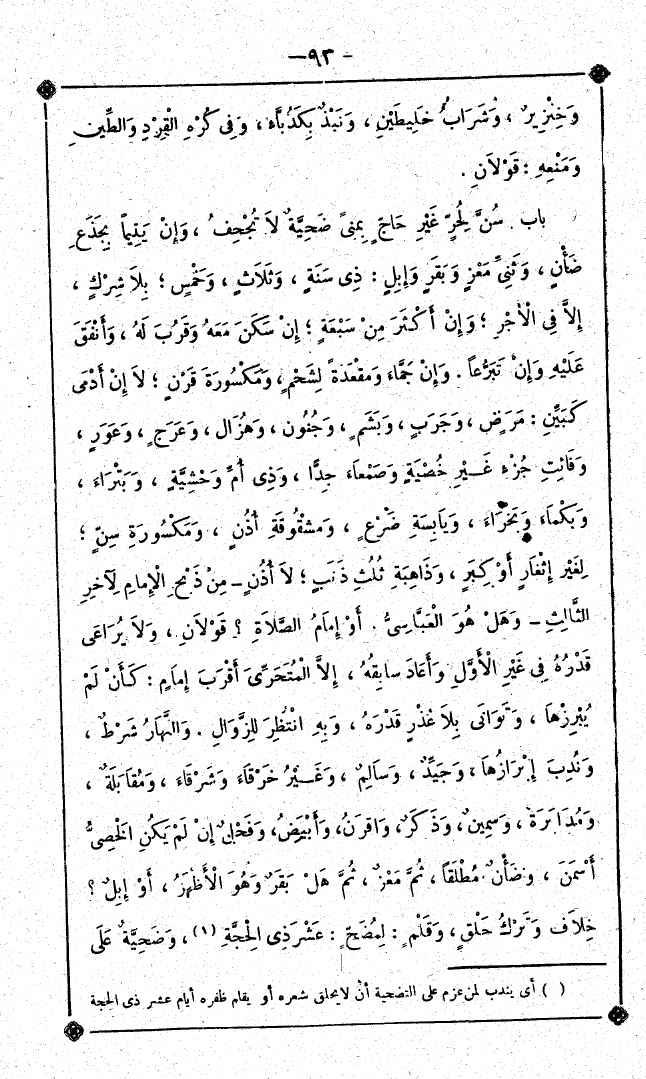 - ٩٣ -
وَخِنْزِيرٌ ، وَشَرَابُ خَلِيطَيْنِ ، وَنَبْذٌ بِكَدُبَّاءَ ، وَفِى كُرْهِ الْقِرْدِ وَالطِّينِ
وَمَنْعِهِ : قَوْلاَنِ .
باب . سُنَّ لِحُرٍّ غَيْرِ حَاجٍّ بِمِنىً ضَحِيَّةٌ لاَ تُجْحِفُ ، وَإِنْ يَتِيماً بِجَذَعِ
ضَأْنٍ ، وَثَنِىِّ مَعْزٍ وَبَقَرٍ وَإِبِلٍ : ذِى سَنَةٍ ، وَثَلاَثٍ ، وَخَمْسٍ ؛ بِلاَ شِرْكٍ ،
إِلاَّ فِى الْأَجْرِ ؛ وَإِنْ أَكْثَرَ مِنْ سَبْعَةٍ ؛ إِنْ سَكَنَ مَعَهُ وَقَرُبَ لَهُ ، وَأَنْفَقَ
عَلَيْهِ وَإِنْ تَبَرُّعاً . وَإِنْ جَمَّاءَ وَمُقْعَدَةً لِشَحْمٍ ، وَمَكْسُورَةَ قَرْنٍ ؛ لاَ إِنْ أَدْمَى
كَبَيِّنِ : مَرَضٍ ، وَجَرَبٍ ، وَبَشَمٍ ، وَجُنُونٍ ، وَهُزَالٍ ، وَعَرَجٍ ، وَعَوَرٍ ،
وَفَائِتِ جُزْءٍ غَيْرِ خُصْيَةٍ وَصَمْعَاءَ جِدًّا ، وَذِى أُمٍّ وَحْشِيَّةٍ ، وَبَتْرَاءَ ،
وَبَكْمَاءَ وَبَخْرَاءَ ، وَيَابِسَةِ ضَرْعٍ ، وَمَشْقُوقَةِ أُذُنٍ ، وَمَكْسُورَةِ سِنٍّ ؛
لِغَيْرِ إِثْغَارٍ أَوْ كِبَرٍ ، وَذَاهِبَةِ ثُلُثِ ذَنَبٍ ؛ لاَ أُذُنٍ - مِنْ ذَبْحِ الْإِمَامِ لِآخِرِ
الثَّالِثِ - وَهَلْ هُوَ الْعَبَّاسِىُّ . أَوْ إِمَامُ الصَّلاَةِ ؟ قَوْلاَنِ ، وَلاَ يُرَاعَى
قَدْرُهُ فِى غَيْرِ الْأَوَّلِ وَأَعَادَ سَابِقُهُ ، إِلاَّ الْمُتَحَرِّىَ أَقْرَبَ إِمَامٍ : كَأَنْ لَمْ
يُبْرِزْهَا ، وَتَوَانَى بِلاَ عُذْرٍ قَدْرَهُ ، وَبِهِ انْتُظِرَ لِلزَّوَالِ . وَالنَّهَارُ شَرْطٌ ،
وَنُدِبَ إِبْرَازُهَا ، وَجَيِّدٌ ، وَسَالِمٌ ، وَغَيْرُ خَرْقَاءَ وَشَرْقَاءَ ، وَمُقَابَلَةٌ ،
وَمُدَابَرَةٌ ، وَسَمِينٌ ، وَذَكَرٌ ، وَاقرَنُ ، وَأَبْيَضُ ، وَفَحْلٌ إِنْ لَمْ يَكُنِ الْخَصِىُّ
أَسْمَنَ ، وَضَأْنٌ مُطْلَقاً ، ثُمَّ مَعْزٌ ، ثُمَّ هَلْ بَقَرٌ وَهُوَ الْأَظْهَرُ ، أَوْ إِبِلٌ ؟
خِلاَفٌ وَتَرْكُ حَلْقٍ ، وَقَلْمٍ : لِمُضَحٍّ : عَشْرَ ذِى الْحِجَّةِ (١) ، وَضَحِيَّةٌ عَلَى
( ) أى يندب لمن عزم على التضحية أن لا يحلق شعره أو يقلم ظفره أيام عشر ذى الحجة